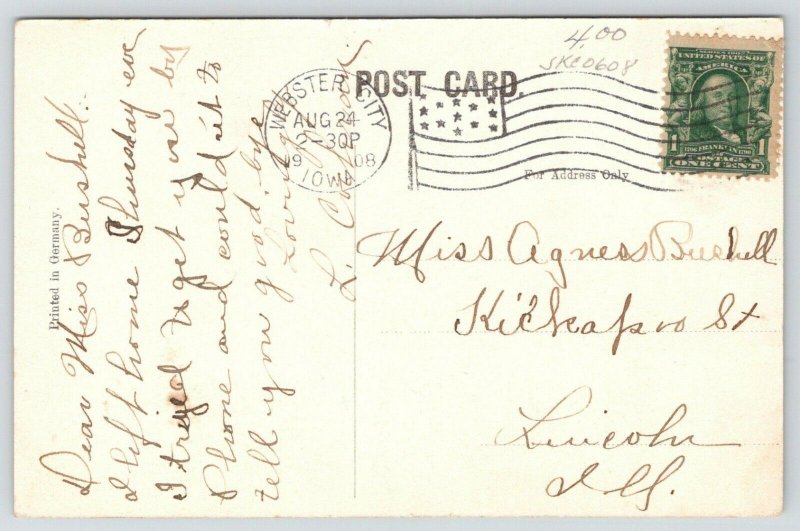 4.00
SKE0608
POST CARD.
WEBSTER CITY
AUG 24
2-30P
19 08
IOWA
SERIES 1902
UNITED STATES OF
AMERICA
1706 FRANKLIN 1790
1 1
POSTAGE
ONE CENT
For Address Only
Printed in Germany.
Dear Miss Bushell.
I left home Thursday eve
I tryed to get you by
Phone and could it to
tell you good.bye
Lovingly
L.
Miss Agness Bushell
Kickapoo St
Lincoln
Ill.